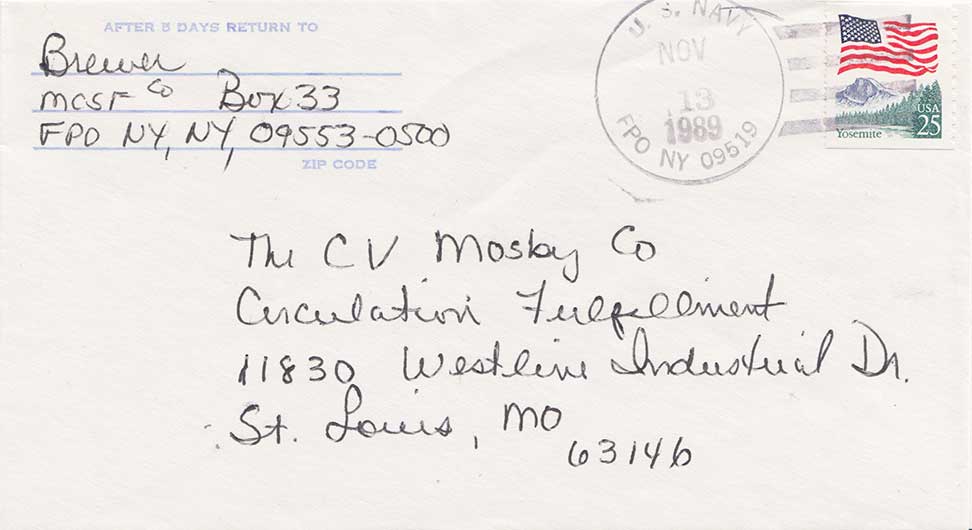 AFTER 5 DAYS RETURN TO
Brewer
MCSF Co Box 33
FPO NY, NY, 09553-0500
ZIP CODE
U. S. NAVY
NOV
13
1989
FPO NY 09519
USA
25
Yosemite
The CV Mosby Co
Circulation Fulfillment
11830 Westline Industrial Dr.
St. Louis, MO
63146